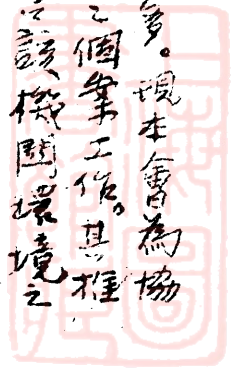 多。現本會為協
個案工作。其推
該機關環境之